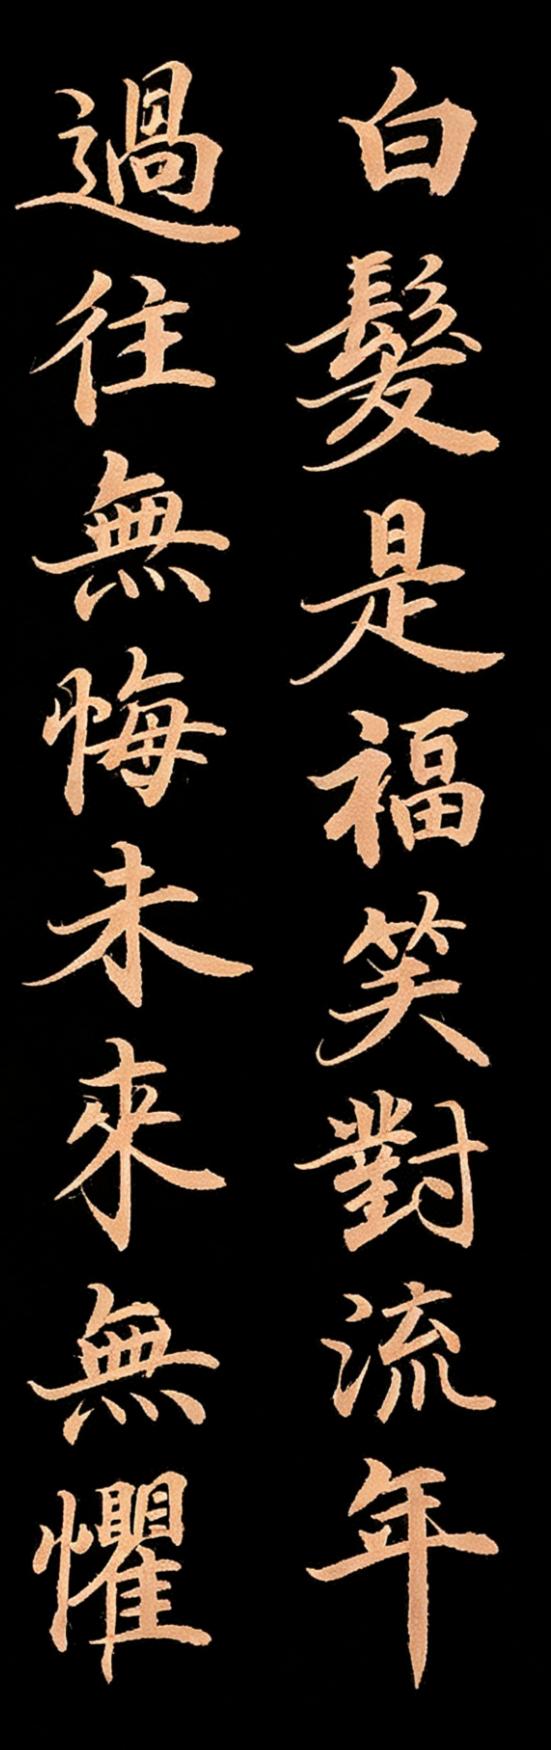 白髮是福笑對流年
過往無悔未來無懼